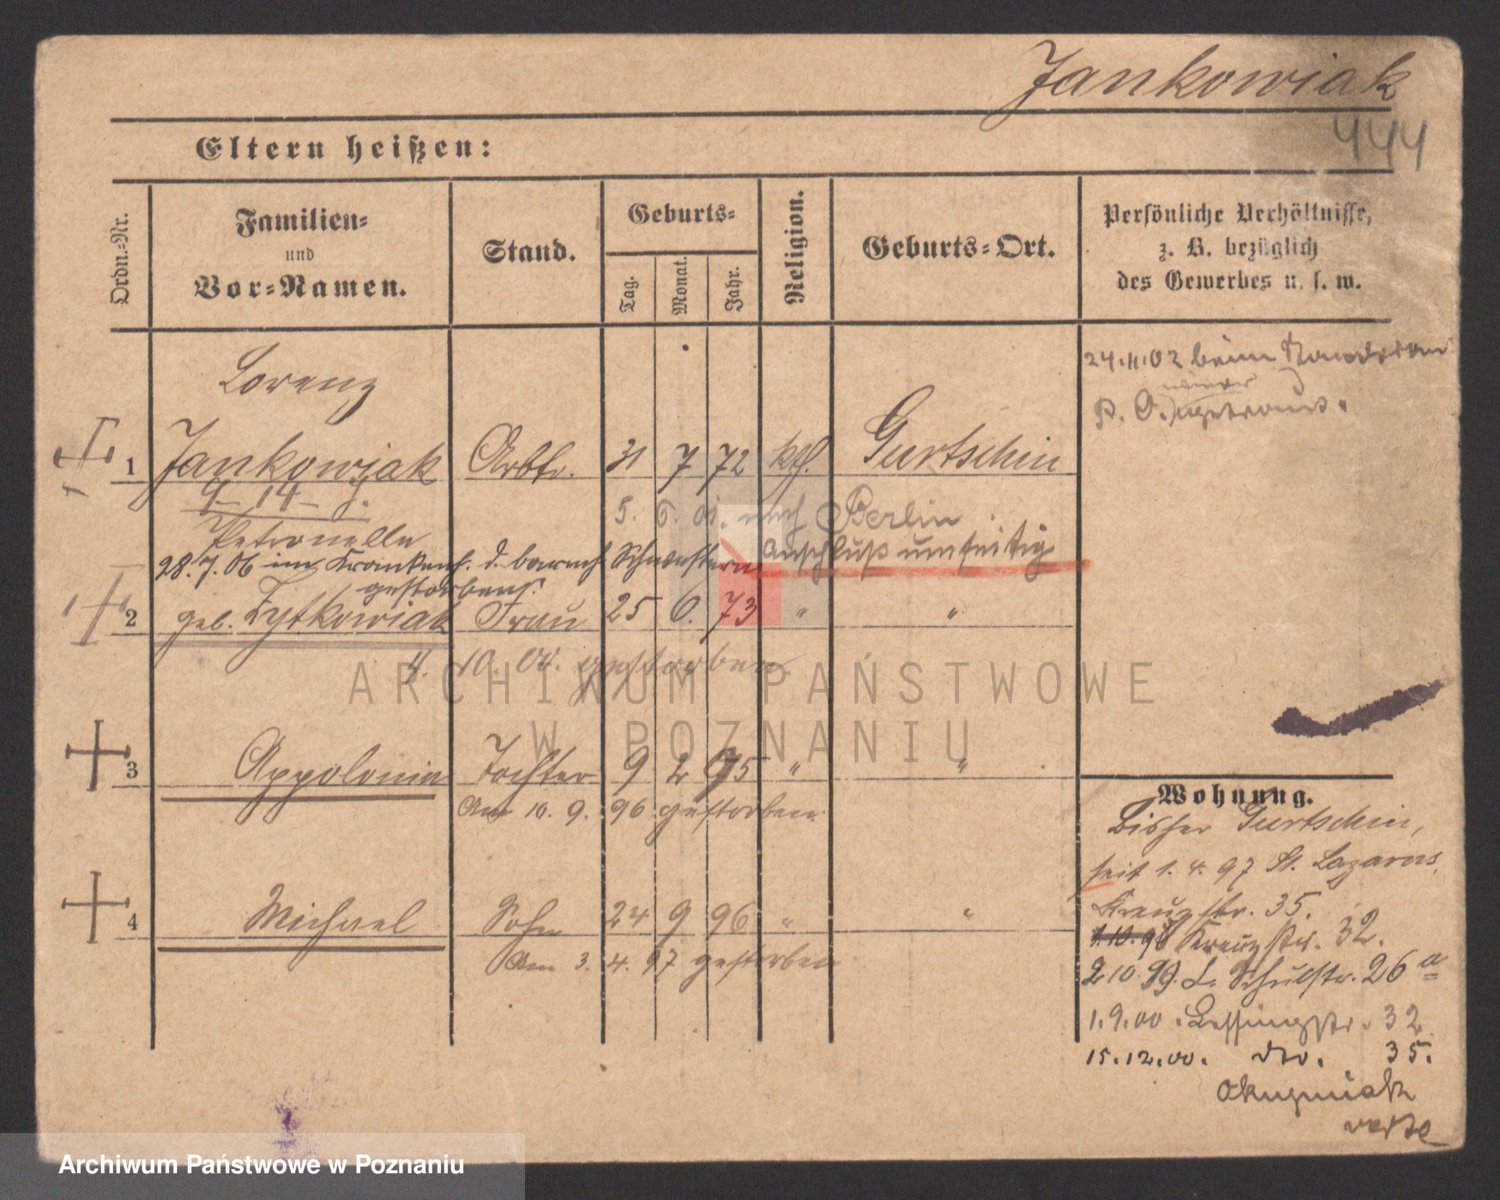 Jankowiak
444
Eltern heißen:
Ordn.-Nr.
Familien-
und
Vor-Namen.
Stand.
Geburts-
Tag.
Monat.
Jahr.
Religion.
Geburts-Ort.
Persönliche Verhältnisse,
z. B. bezüglich
des Gewerbes u. s. w.
24.11.02 beim
Lorenz
1 Jankowjak Arbtr. 31 7 72 kth. Gurtschin
9 14
5. 6. 01. nach Berlin
Petronella
Anschluß umseitig
28.7.06 im Krankenh. d. barmh. Schwestern
gestorben.
2 geb. Zytkowiak Frau 25 6. 73 " "
4. 10. 00. gestorben
ARCHIWUM PAŃSTWOWE
W POZNANIU
3 Appolonia Tochter 9 2 95 " "
Am 10. 9. 96 gestorben
4 Michael Sohn 24 9 96 " "
Am 3. 4. 97 gestorben
Wohnung.
Bisher Gurtschin,
seit 1. 4. 97 St. Lazarus,
Kreuzstr. 35.
1.10.98 Kreuzstr. 32.
2.10.99. L. Schulstr. 26a
1.9.00. Lessingstr. 32
15.12.00. do. 35.
verte
Archiwum Państwowe w Poznaniu